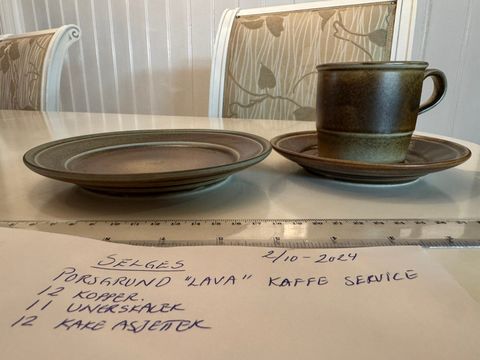 SELGES 2/10-2024
PORSGRUND "LAVA" KAFFE SERVICE
12 KOPPER.
11 UNERSKÅLER
12 KAKE ASJETTER